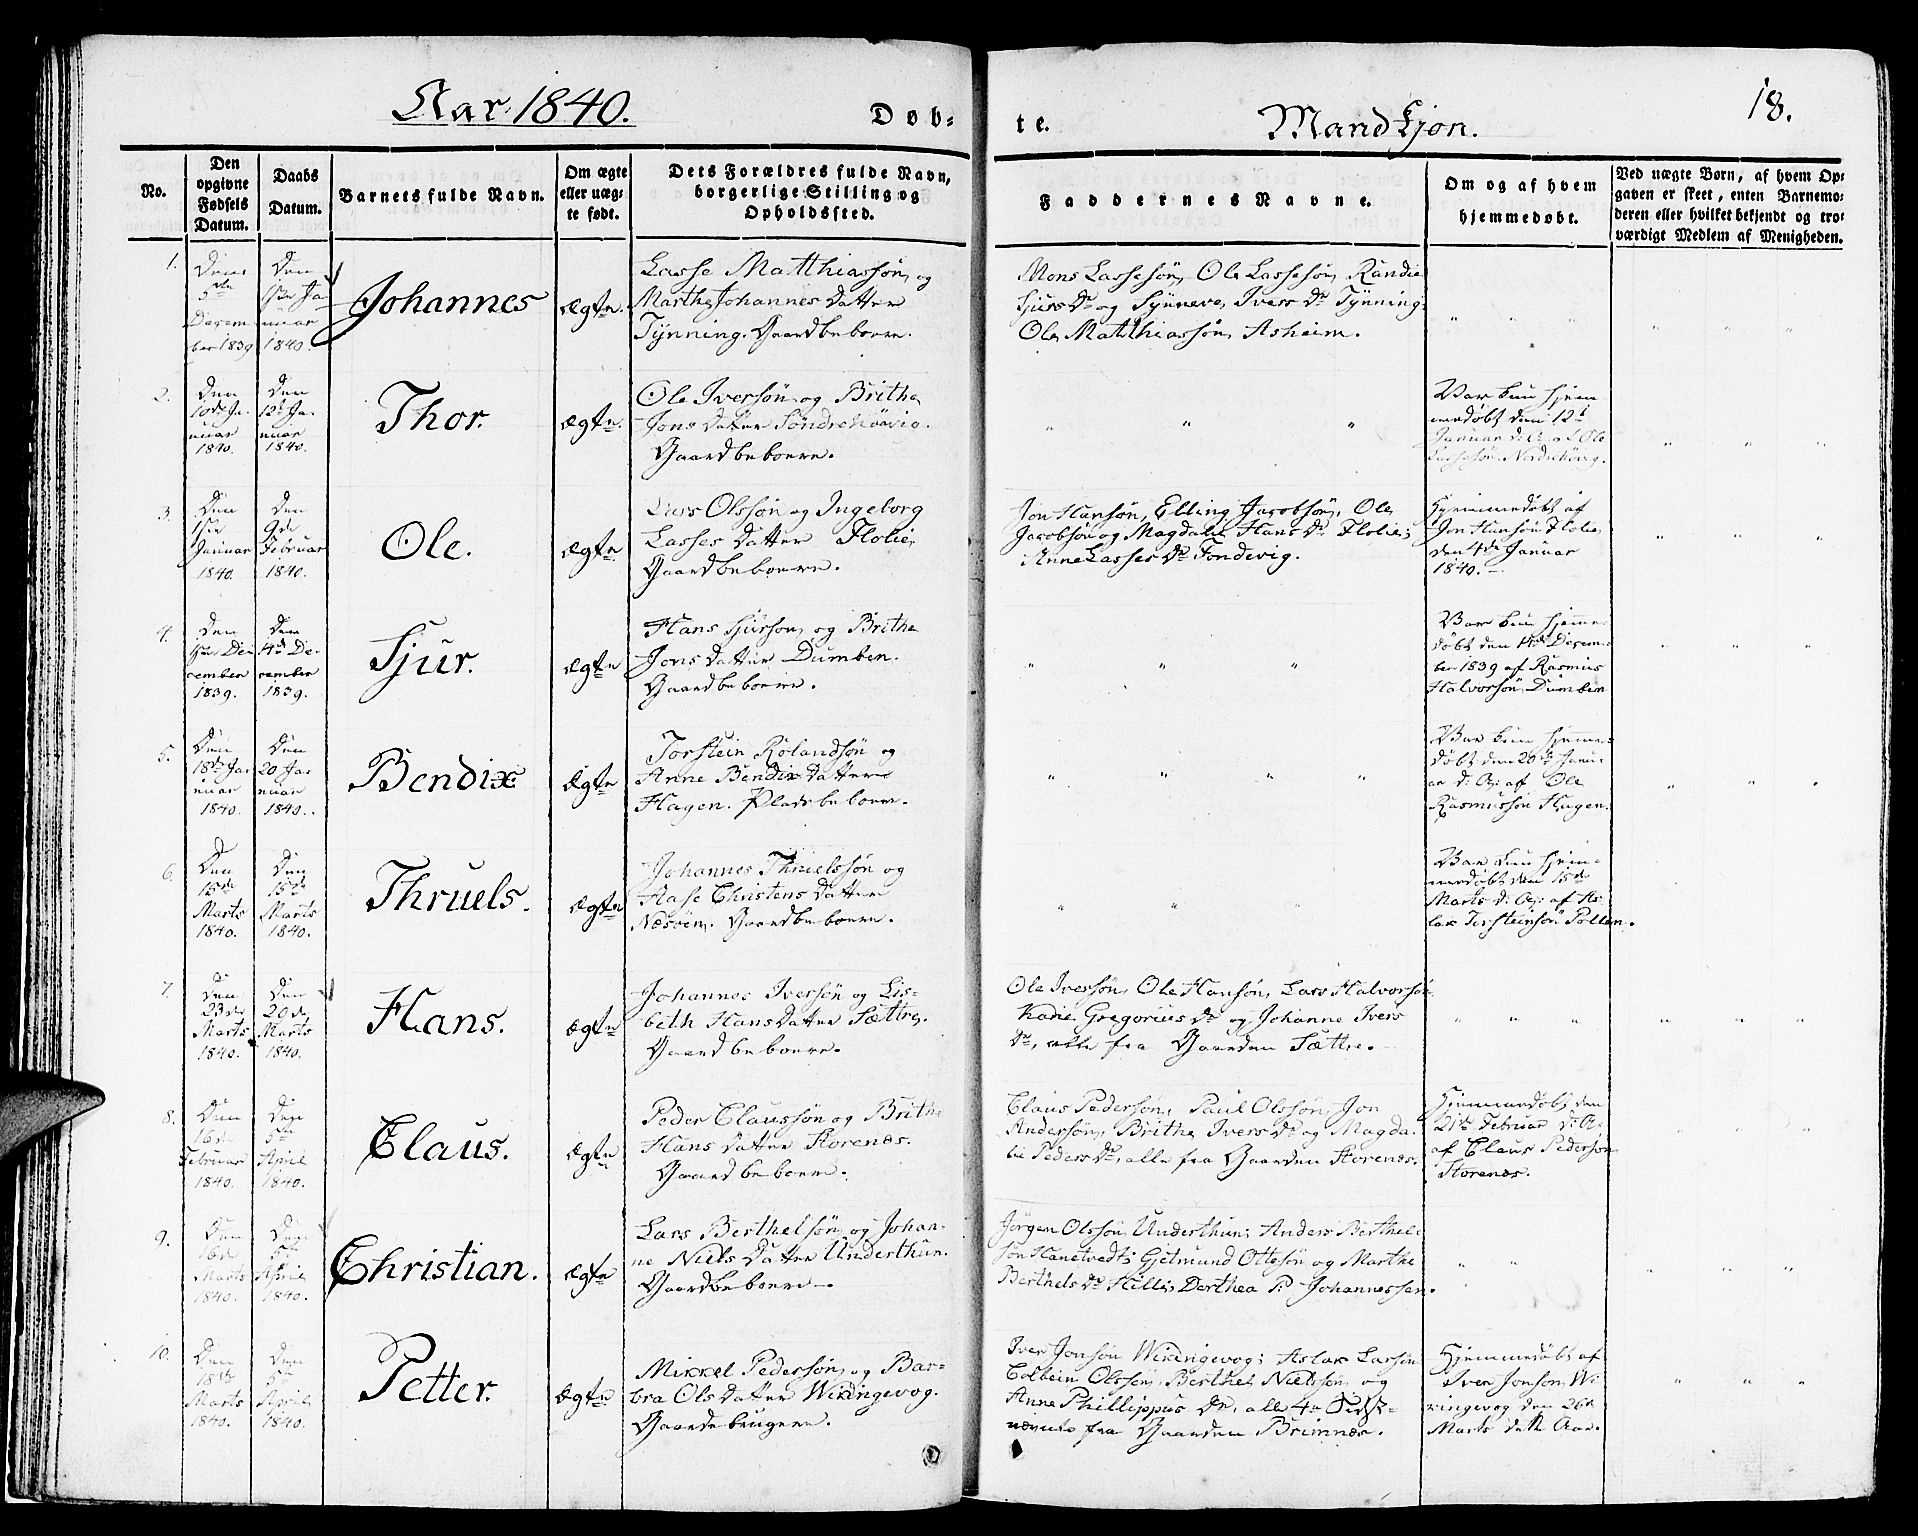 Aar 1840.
Døb-
te.
Mandkjøn.
18.
No.
Den
opgivne
Fødsels
Datum.
Daabs
Datum.
Barnets fulde Navn.
Om ægte
eller uæg-
te født.
Dets Forældres fulde Navn,
borgerlige Stilling og
Opholdssted.
Faddernes Navne.
Om og af hvem
hjemmedøbt.
Ved uægte Børn, af hvem Op-
gaven er skeet, enten Barnemo-
deren eller hvilket bekjendt og tro-
værdigt Medlem af Menigheden.
1.
Den
5te
Decem
ber 1839
Den
1ste Ja
nuar
1840.
Johannes
ægte.
Lasse Matthiassøn og
Marthe Johannes Datter
Tynning. Gaardbeboere.
Mons Lassesøn, Ole Lassesøn, Randie
Sjurs Dr og Synneve Ivers Dr Tynning.
Ole Matthiassøn Asheim.
2.
Den
10de Ja-
nuar
1840.
Den
12te Ja-
nuar
1840.
Thor.
ægte.
Ole Iversøn og Brithe
Jons Datter Søndrehöivig.
Gaardbeboere.
Var kun hjem
medøbt den 12te
Januar d. A. af Ole
Lassesøn Nordrehövig.
3.
Den
1ste
Januar
1840.
Den
9de
Februar
1840.
Ole.
ægte
Lars Olssøn og Ingeborg
Lasses Datter Flolie,
Gaardbeboere.
Jon Hansøn, Elling Jacobsøn, Ole
Jacobsøn og Magdale Hans Dr Flolie;
Anne Lasses Dr Tondevig.
Hjemmedøbt af
Jon Hansøn Flolie,
den 4de Januar
1840.
4.
Den
1ste De
cember
1839.
Den
14de De-
cember
1839.
Sjur.
ægte
Hans Sjursøn og Brithe
Jons Datter Dumben.
Gaardbeboere.
Var kun hjemme-
døbt den 14de Decem-
ber 1839 af Rasmus
Halvorsøn Dumben
5.
Den
18de Ja-
nuar
1840.
Den
20 Ja-
nuar
1840.
Bendix
ægte
Torstein Rolandsøn og
Anne Bendix Datter
Hagen. Pladsbeboere.
Var kun hjemme-
døbt den 20de Janu-
ar d: A: af Ole
Rasmussøn Hagen.
6.
Den
15de
Marts
1840.
Den
15de
Marts
1840.
Thruels.
ægte
Johannes Thruelssøn og
Aase Christens Datter
Næsøen. Gaardbeboere.
Var kun hjem-
medøbt den 15de
Marts d: A: af As-
lak Torsteinsøn Pollen.
7.
Den
23de
Marts
1840.
Den
20de
Marts
1840.
Hans.
ægte
Johannes Iversøn og Lis-
beth Hans Datter Sættre.
Gaardbeboere.
Ole Iversøn, Ole Hansøn, Lars Halvorsøn
Karie Gregorius Dr og Johanne Ivers
Dr, alle fra Gaarden Sættre.
8.
Den
16de
Februar
1840.
Den
5te
April
1840.
Claus.
ægte
Peder Claussøn og Brithe
Hans Datter Storenæs.
Gaardbeboere.
Claus Pedersøn, Paul Olssøn, Jon
Andersøn, Brithe Ivers Dr og Magda-
le Peders Dr, alle fra Gaarden Storenæs.
Hjemmedøbt den
21de Februar d: A:
af Claus Pedersøn
Storenæs.
9.
Den
16de
Marts
1840.
Den
5te
April
1840.
Christian.
ægte
Lars Berthelsøn og Johan-
ne Niels Datter Underthun.
Gaardbeboere.
Jørgen Olssøn Underthun; Anders Berthel-
søn Hanetvedt; Gjetmund Ottesøn og Marthe
Berthels Dr Hille; Dorthea P. Johannessen.
10.
Den
18de
Marts
1840.
Den
5te
April
1840.
Petter.
ægte.
Mikkel Pedersøn og Bar-
bra Ols Datter Wiringevog.
Gaardbrugere.
Iver Jonsøn Wiringevog; Aslak Larsøn
Colbein Olssøn, Berthel Nielsøn og
Anne Phillippus Dr, alle 4re Sidst-
nævnte fra Gaarden Brimnæs.
Hjemmedøbt af
Iver Jonsøn Wi-
ringevog den 26de
Marts dette Aar.